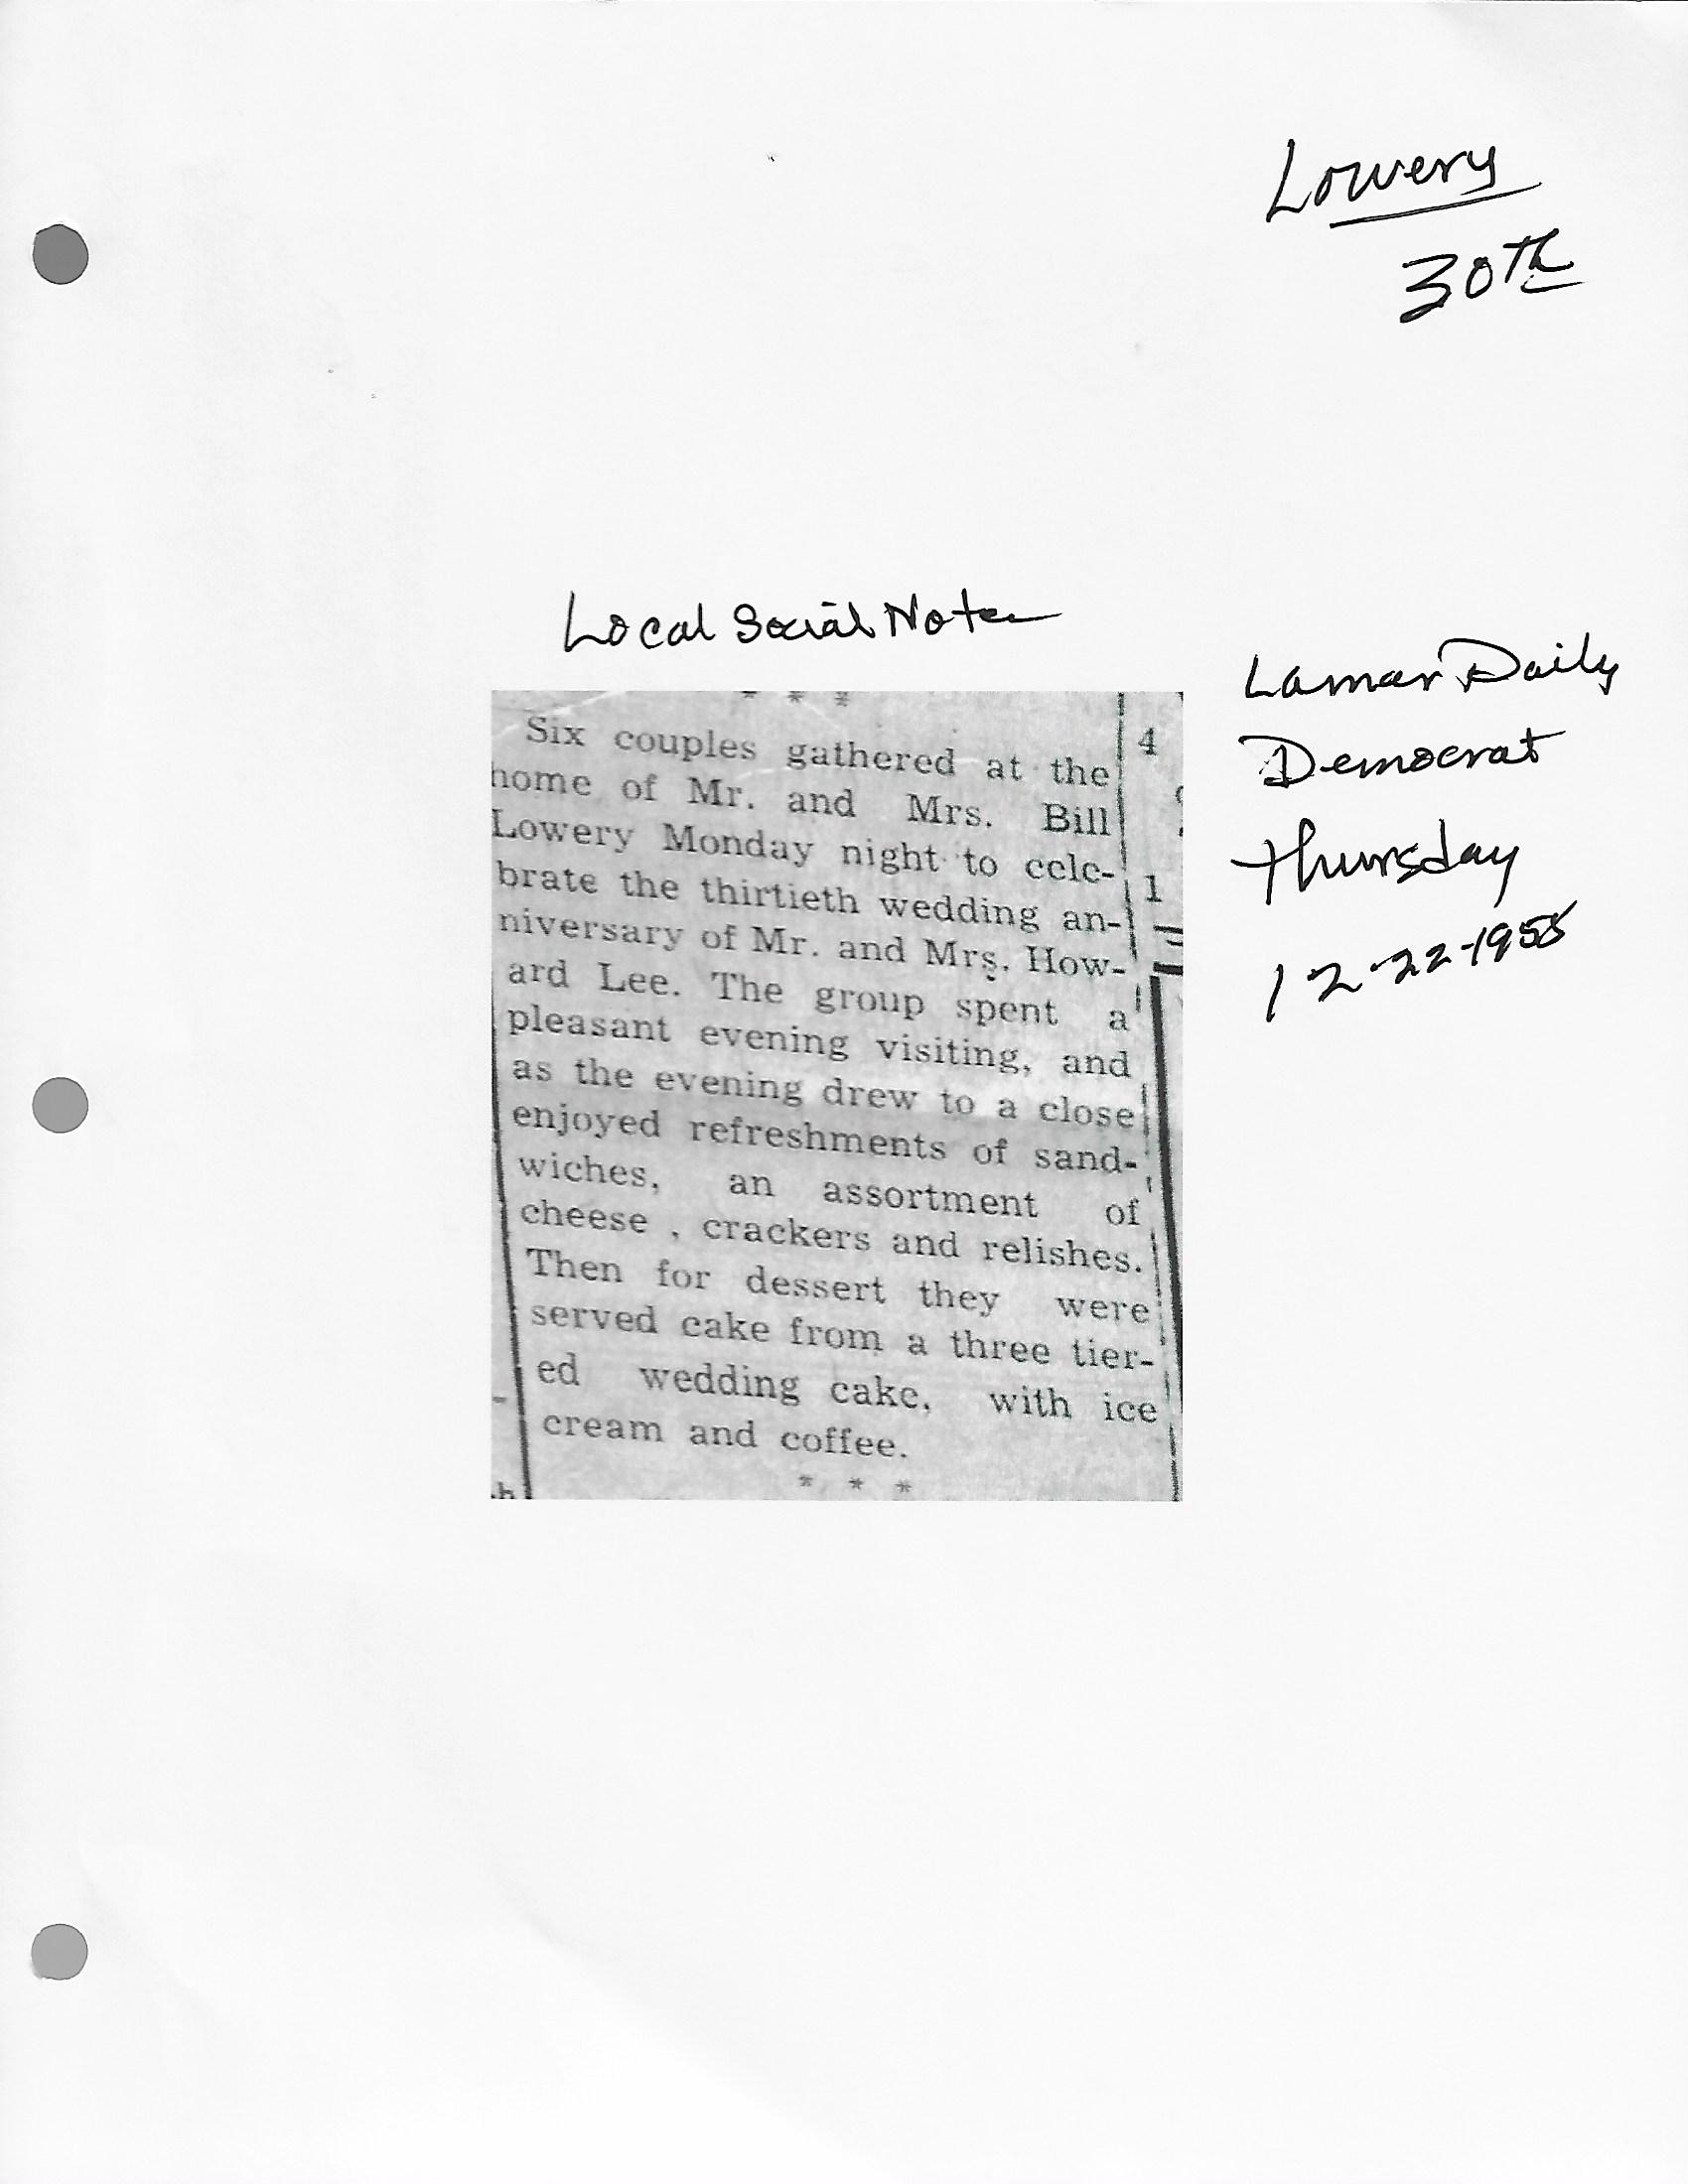 Lowery
30th
Local Social Notes
Lamar Daily
Democrat
Thursday
12-22-1955
* * *
Six couples gathered at the
home of Mr. and Mrs. Bill
Lowery Monday night to cele-
brate the thirtieth wedding an-
niversary of Mr. and Mrs. How-
ard Lee. The group spent a
pleasant evening visiting, and
as the evening drew to a close
enjoyed refreshments of sand-
wiches, an assortment of
cheese , crackers and relishes.
Then for dessert they were
served cake from a three tier-
ed wedding cake, with ice
cream and coffee.
* * *
4
1